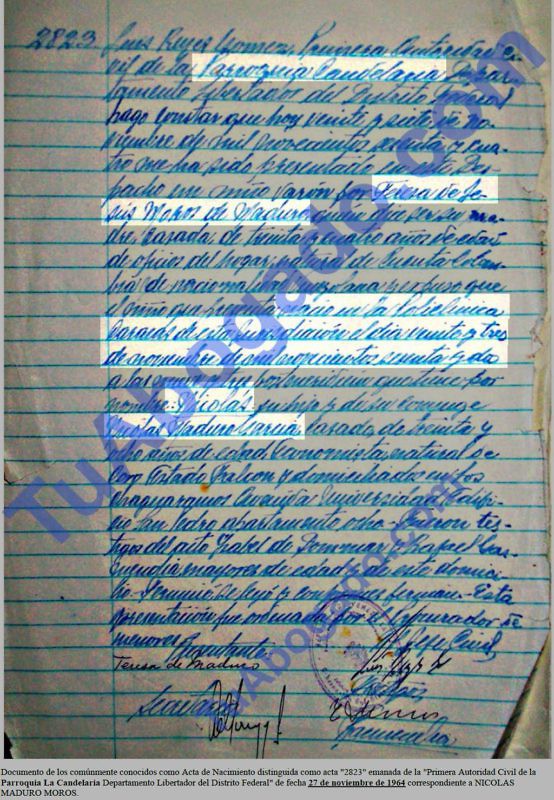 2823. Luis Reyes Gomez, Primera Autoridad Ci-
vil de la Parroquia Candelaria Depar-
tamento Libertador del Distrito Federal
hago constar que hoy veinte y siete de no-
viembre de mil novecientos sesenta y cua-
tro me ha sido presentado ante este Des-
pacho un niño varón por Teresa de Je-
sús Moros de Maduro quien dice ser su ma-
dre, casada, de treinta y cuatro años de edad
de oficio del hogar, natural de Cúcuta Colom-
bia, de nacionalidad expuso que
el niño que nació en la Policlínica
Caracas de esta Jurisdicción el día veinte y tres
de noviembre de mil novecientos sesenta y dos
a las que tiene por
nombre: Nicolas, su hijo y de su conyuge
Nicolas Maduro García, casado, de treinta y
ocho años de edad, Economista, natural de
Coro Estado Falcon y domiciliados en los
Chaguaramos Avenida Universidad Edifi-
cio San Pedro apartamento ocho. Fueron tes-
tigos del acto Isabel de y Rafael
mayores de edad y de este domici-
lio. Terminó se leyó y conformes firman. Esta
presentación fue ordenada por el Procurador de
menores. El Jefe Civil
Presentante
Teresa de Maduro
Testigos
Secretario
TuAbogado.com
TuAbogado.com
TuAbogado.com
Documento de los comúnmente conocidos como Acta de Nacimiento distinguida como acta "2823" emanada de la "Primera Autoridad Civil de la
Parroquia La Candelaria Departamento Libertador del Distrito Federal" de fecha 27 de noviembre de 1964 correspondiente a NICOLAS
MADURO MOROS.